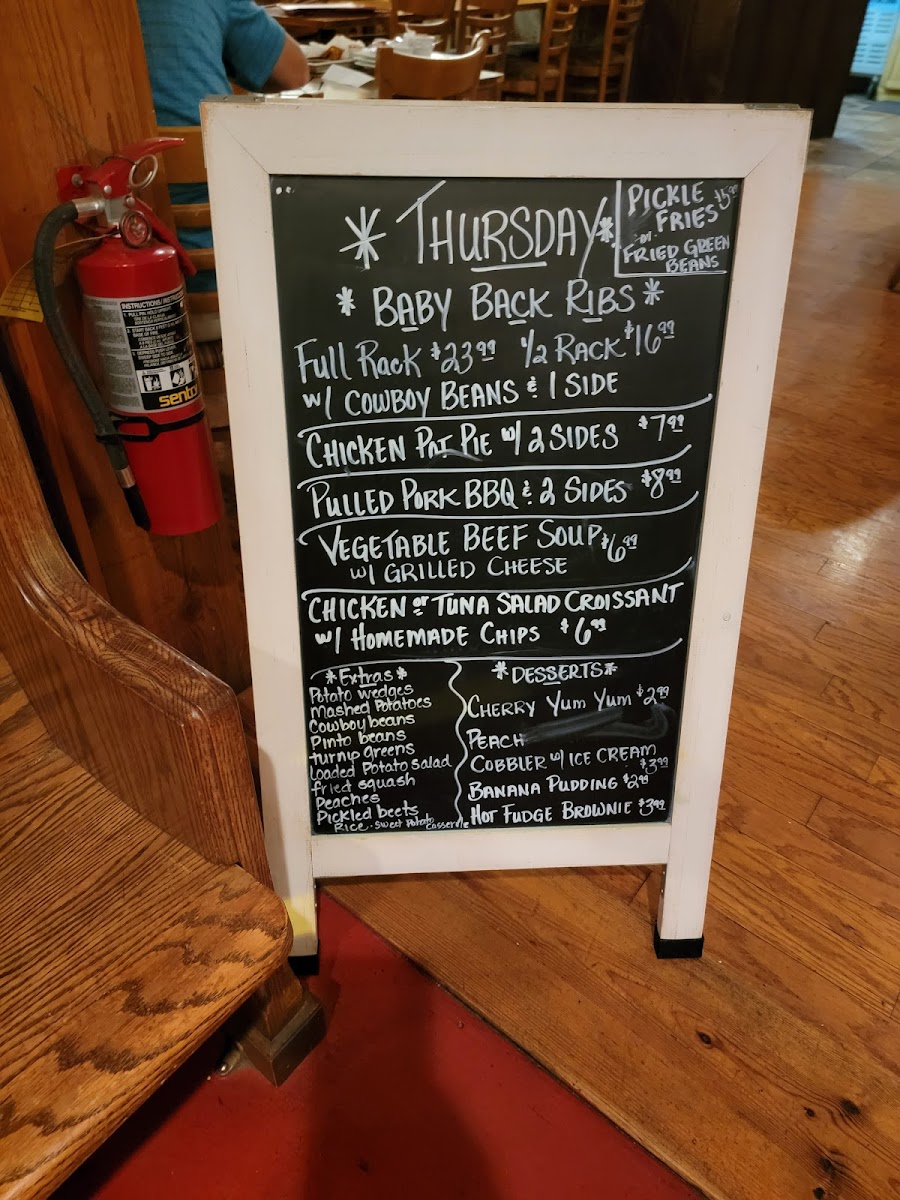 * THURSDAY *
PICKLE
FRIES $5.99
or
FRIED GREEN
BEANS
* BABY BACK RIBS *
FULL RACK $23.99 1/2 RACK $16.99
W/ COWBOY BEANS & 1 SIDE
CHICKEN POT PIE W/ 2 SIDES $7.99
PULLED PORK BBQ & 2 SIDES $8.99
VEGETABLE BEEF SOUP $6.99
W/ GRILLED CHEESE
CHICKEN or TUNA SALAD CROISSANT
W/ HOMEMADE CHIPS $6.99
*Extras*
Potato wedges
Mashed Potatoes
Cowboy beans
Pinto beans
turnip greens
Loaded Potato salad
fried squash
Peaches
Pickled beets
Rice · Sweet Potato Casserole
*DESSERTS*
CHERRY YUM YUM $2.99
PEACH
COBBLER W/ ICE CREAM
$3.99
BANANA PUDDING $2.99
HOT FUDGE BROWNIE $3.99
INSTRUCTIONS
sentry